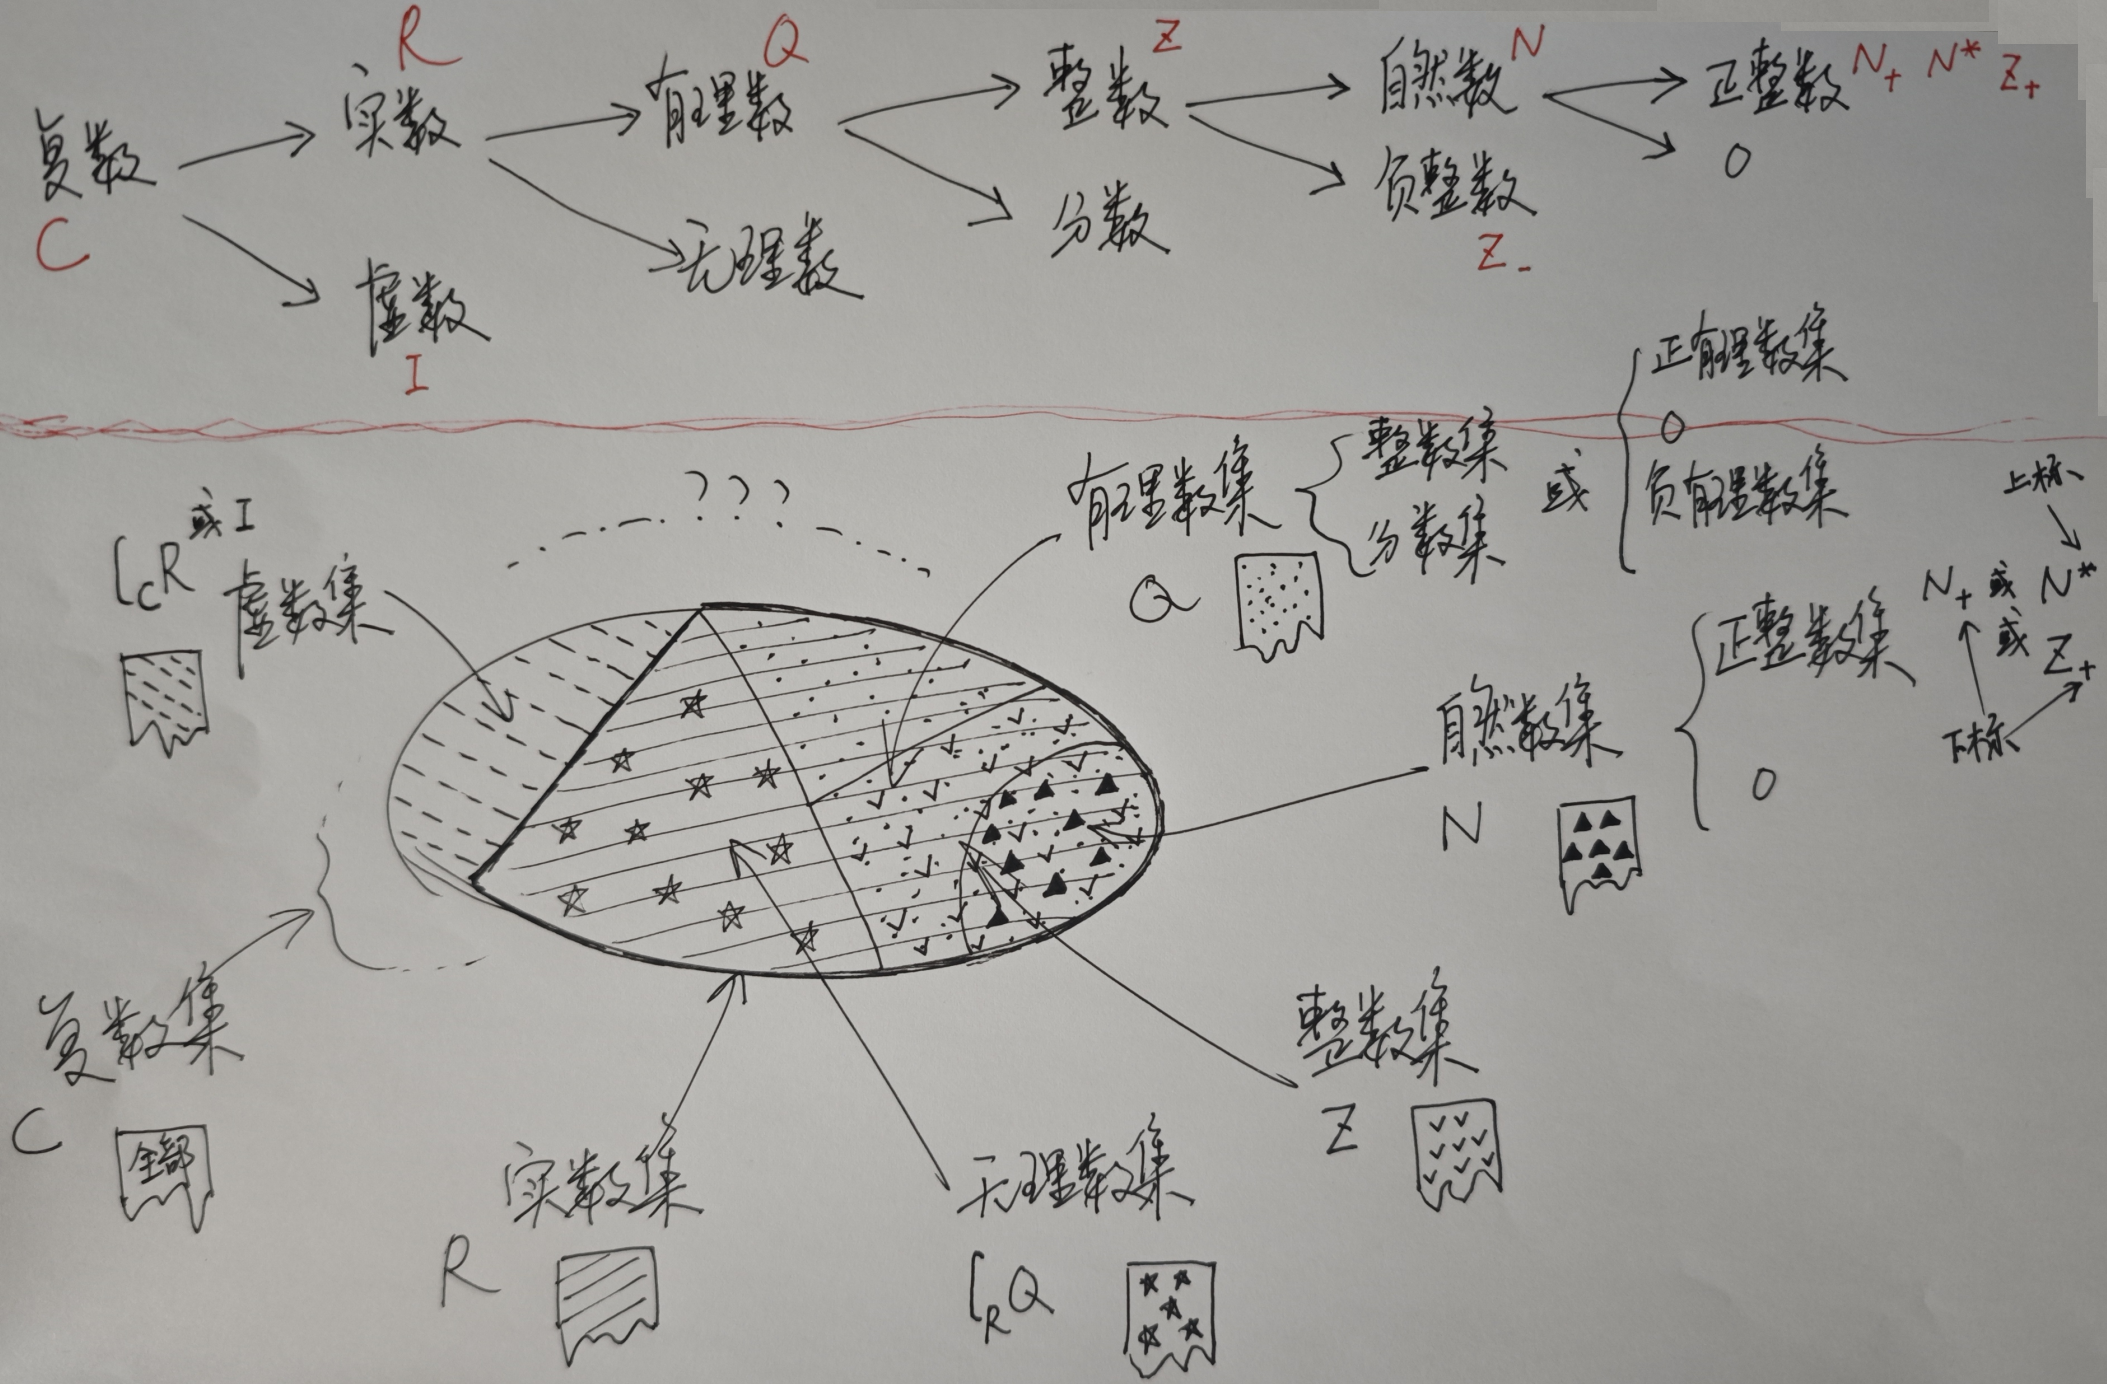 复数 C
实数 R
虚数 I
有理数 Q
无理数
整数 Z
分数
自然数 N
负整数 Z-
正整数 N+ N* Z+
0
???
∁cR 或 I
虚数集
有理数集
Q
整数集
分数集
或
正有理数集
0
负有理数集
自然数集
N
正整数集
0
N+ 或 N*
或 Z+
上标
下标
复数集
C
全部
实数集
R
无理数集
∁RQ
整数集
Z